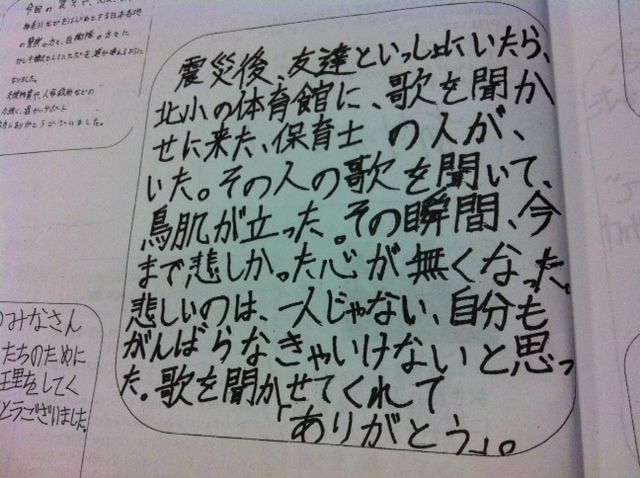 震災後、友達といっしょにいたら、
北小の体育館に、歌を聞か
せに来た、保育士の人が、
いた。その人の歌を聞いて、
鳥肌が立った。その瞬間、今
まで悲しか。った心が無くなった。
悲しいのは、一人じゃない、自分も
がんばらなきゃいけないと思っ
た。歌を聞かせてくれて
「ありがとう」。
のみなさん
たちのために
をしてく
とうございました。